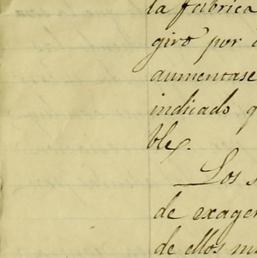 la fabrica
giro por
aumentase
indicado q
ble.
Los s
de exager
de ellos